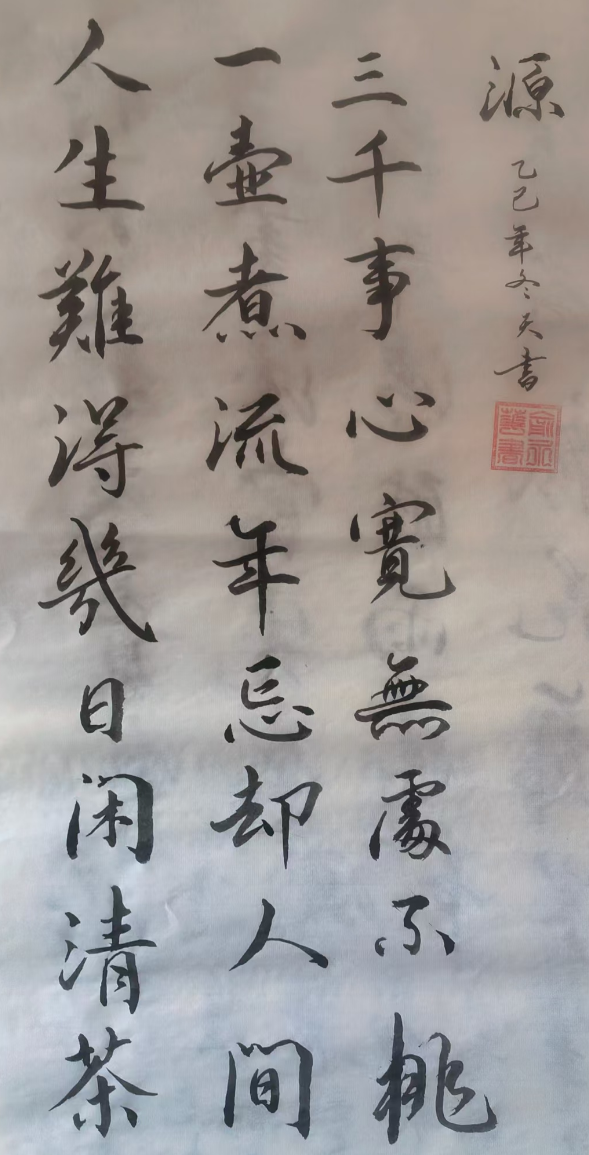 人生難得幾日闲清茶
一壺煮流年忘却人間
三千事心寬無處不桃
源
乙巳年冬天書